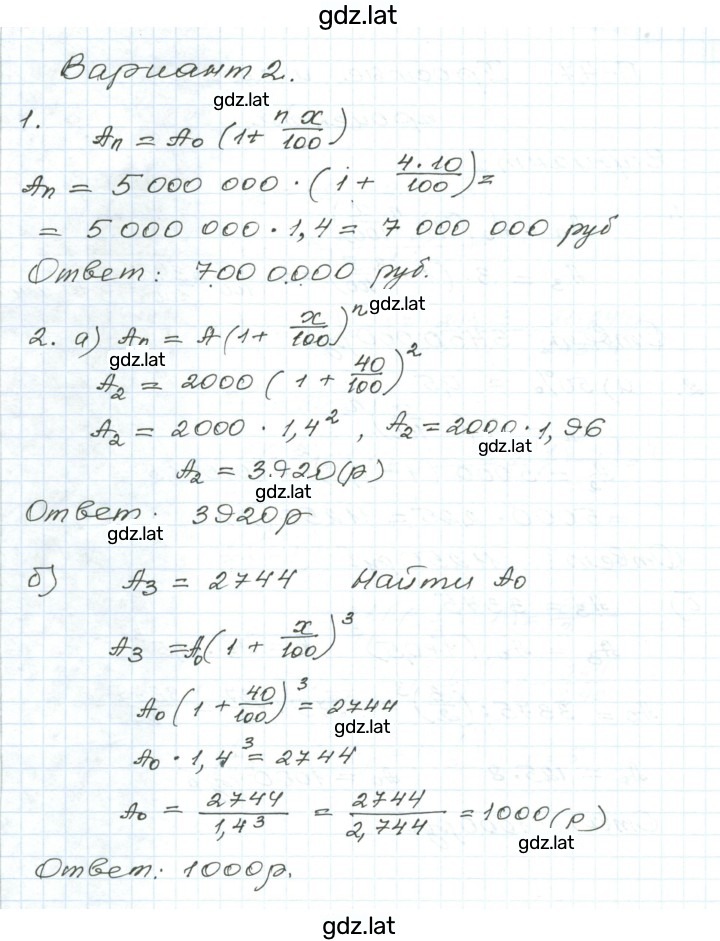 gdz.lat
Вариант 2.
gdz.lat
1. An = A0 (1 + n x/100)
An = 5 000 000 · (1 + 4·10/100) =
= 5 000 000 · 1,4 = 7 000 000 руб
Ответ: 7000.000 руб.
gdz.lat
2. а) An = A (1 + x/100)^n
gdz.lat
A2 = 2000 (1 + 40/100)^2
A2 = 2000 · 1,4^2 , A2 = 2000 · 1,96
gdz.lat
A2 = 3.920(р)
gdz.lat
Ответ. 3920р
gdz.lat
б) A3 = 2744 Найти A0
A3 = A0 (1 + x/100)^3
A0 (1 + 40/100)^3 = 2744
gdz.lat
A0 · 1,4^3 = 2744
A0 = 2744/1,4^3 = 2744/2,744 = 1000(р)
gdz.lat
Ответ: 1000р.
gdz.lat